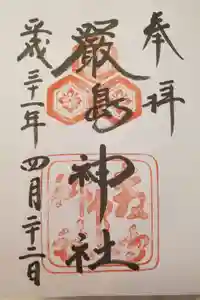 奉拝
嚴島神社
平成三十一年四月二十二日